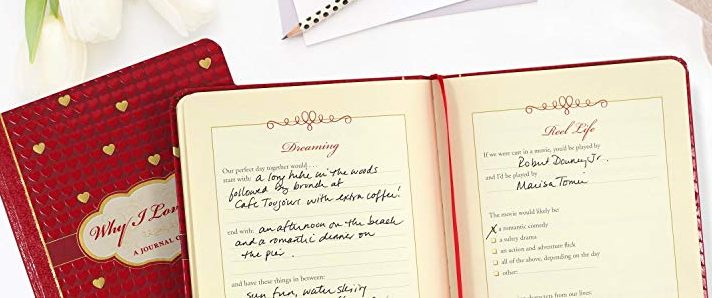 Why I Lov
A JOURNAL O
Dreaming
Our perfect day together would . . .
start with: a long hike in the woods
followed by brunch at
Cafe Toujours with extra coffee!
end with: an afternoon on the beach
and a romantic dinner on
the pier.
and have these things in between:
sun, fun, water skiing
Reel Life
If we were cast in a movie, you'd be played by
Robert Downey Jr.
and I'd be played by
Marisa Tomei
The movie would likely be:
X a romantic comedy
a sultry drama
an action and adventure flick
all of the above, depending on the day
other:
characters from our lines: